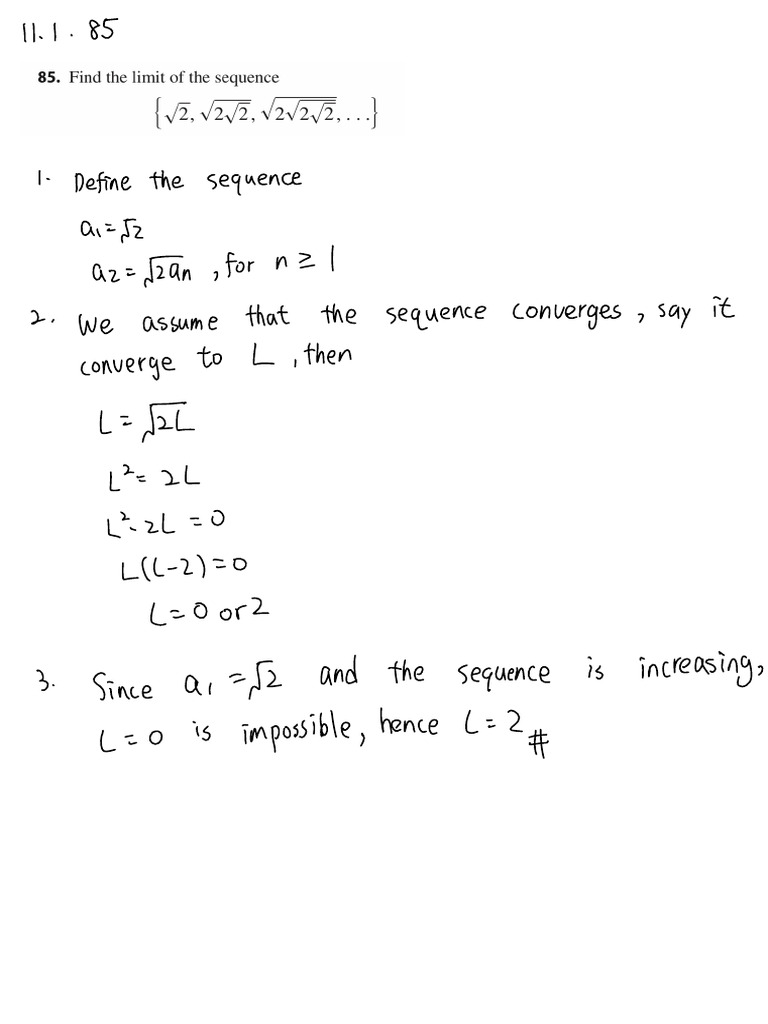 11.1.85
85. Find the limit of the sequence
{√2, √(2√2), √(2√(2√2)), . . .}
1. Define the sequence
a₁=√2
a₂=√(2aₙ) , for n ≥ 1
2. We assume that the sequence converges, say it
converge to L, then
L = √(2L)
L²= 2L
L²-2L = 0
L(L-2)=0
L=0 or 2
3. Since a₁ =√2 and the sequence is increasing,
L=0 is impossible, hence L=2 #